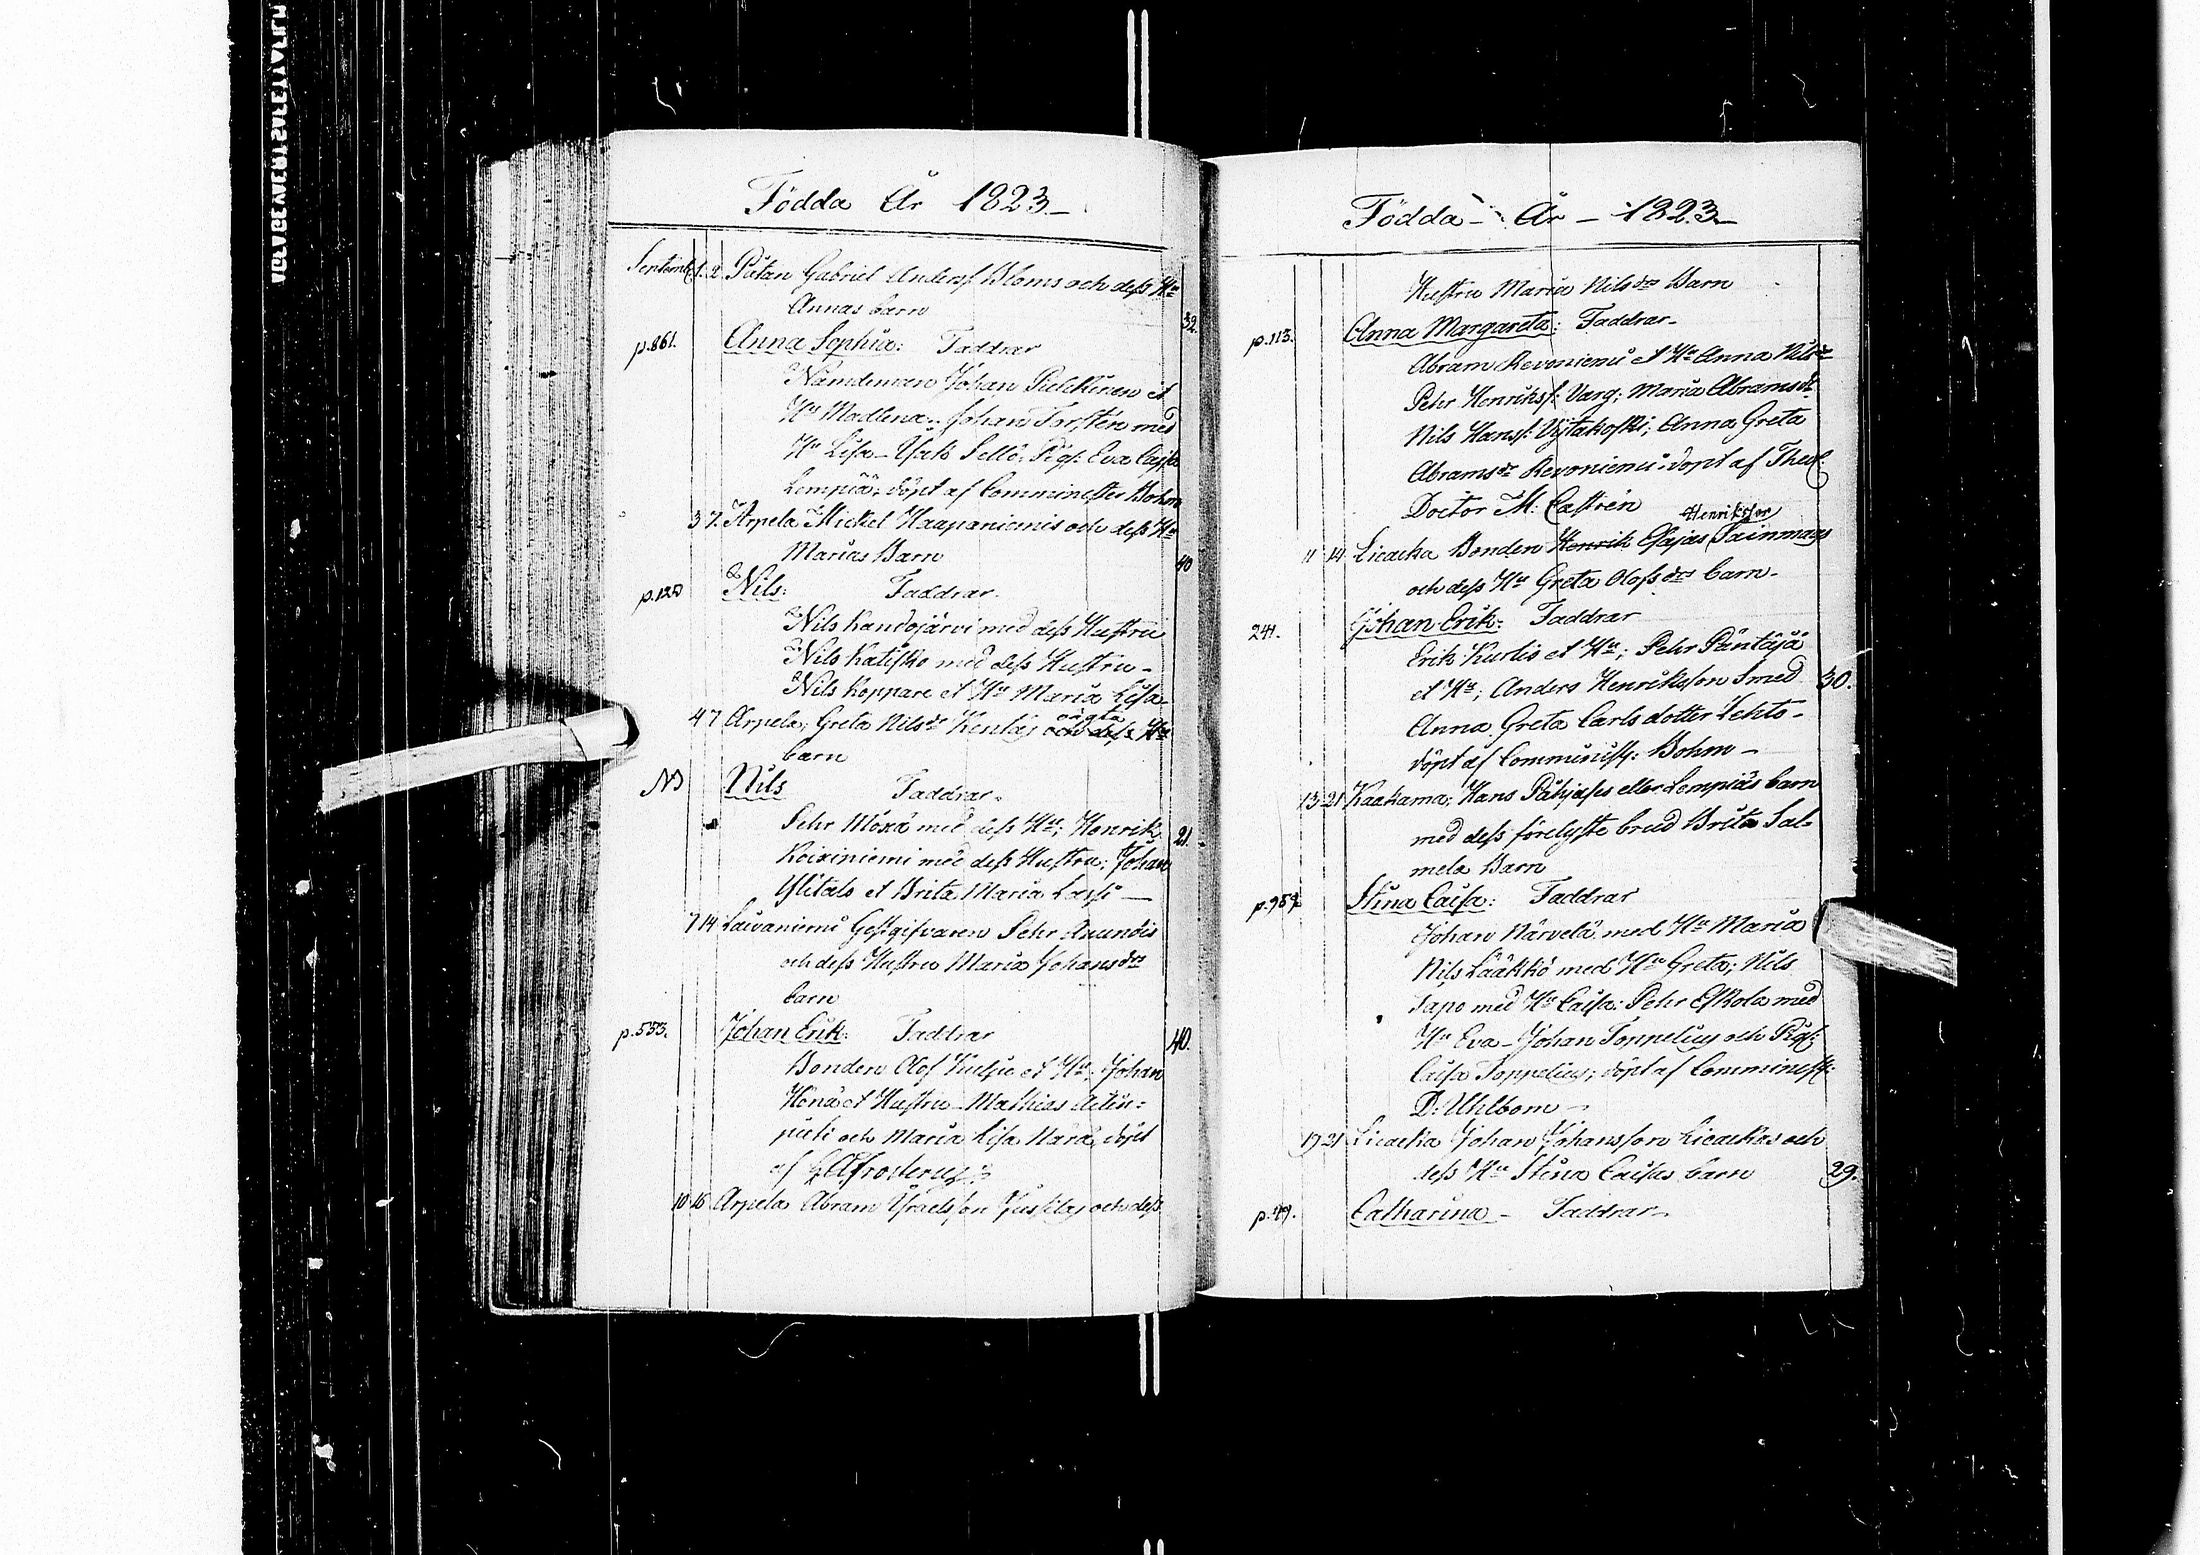 Födda År 1823
Septemb. 1. 2 Pätan Gabriel Anderss. Bloms och dess Hu
Annas barn
32.
p.861. Anna Sophia: Faddrar
Nämdeman Johan Pulckinen et
Hu Madlena; Johan Torstén med
Hu Lisa Isak Sello Pig: Eva Caisa
Lempiä; döpt af Comminister Bohm
3 7. Arpela Mickel Haapaniemis och dess Hu
Marias Barn
40
Nils: Faddrar.
Nils Kandojärvi med dess Hustru
Nils Katisko med dess Hustru
Nils Koppare et Hu Maria Lisa
4 7 Arpela; Greta Nilsdr oägta
barn
NB Nils Faddrar.
Pehr Möxä med dess Hu; Henrik 21.
Koiviniemi med dess Hustru; Johan
Ylitalo et Brita Maria Lassi
7 14 Laivaniemi Gestgifvaren Pehr Anundis
och dess Hustru Maria Johansdrs
barn
p.553. Johan Erik: Faddrar 40.
Bonden Olof et Hu; Johan
et Hustru Mathias
och Maria Lisa döpt
af
10 16 Arpela Abram Israelsson och dess
Födda År 1823
Hustru Maria Nilsdrs Barn
p.113. Anna Margareta: Faddrar
Abram Revoniemi et Hu Anna Nilsdr
Pehr Henrikss: Varg; Maria Abramsdr
Nils Hanss: Vijtakoski; Anna Greta
Abramsdr Revoniemi. döpt af Theol:
Doctor M: Castrén
Henriksson
11 14 Liedakka Bonden Henrik Esajas Tainmays
och dess Hu Greta Olofsdrs barn
241. Johan Erik: Faddrar
Erik Kurtis et Hu; Pehr Päntäjä
et Hu; Anders Henriksson Smed 30.
Anna Greta Carlsdotter Lehto
döpt af Comminist: Bohm
13 21 Kaakama; Hans Påhjases eller Lempiäs barn
med dess förelyste brud Brita Sal-
mela Barn
p.959. Stina Caisa: Faddrar
Johan Närvelä med Hu Maria
Nils Lääkkö med Hu Greta; Nils
Sapo med Hu Caisa: Pehr Eskola med
Hu Eva Johan Toppelius och Pig:
Caisa Toppelius; döpt af Comminist:
D: Uhlbom
19 21 Liedakka Johan Johansson Liedakkas och
dess Hu Stina Caisas barn 29.
p.49. Catharina Faddrar